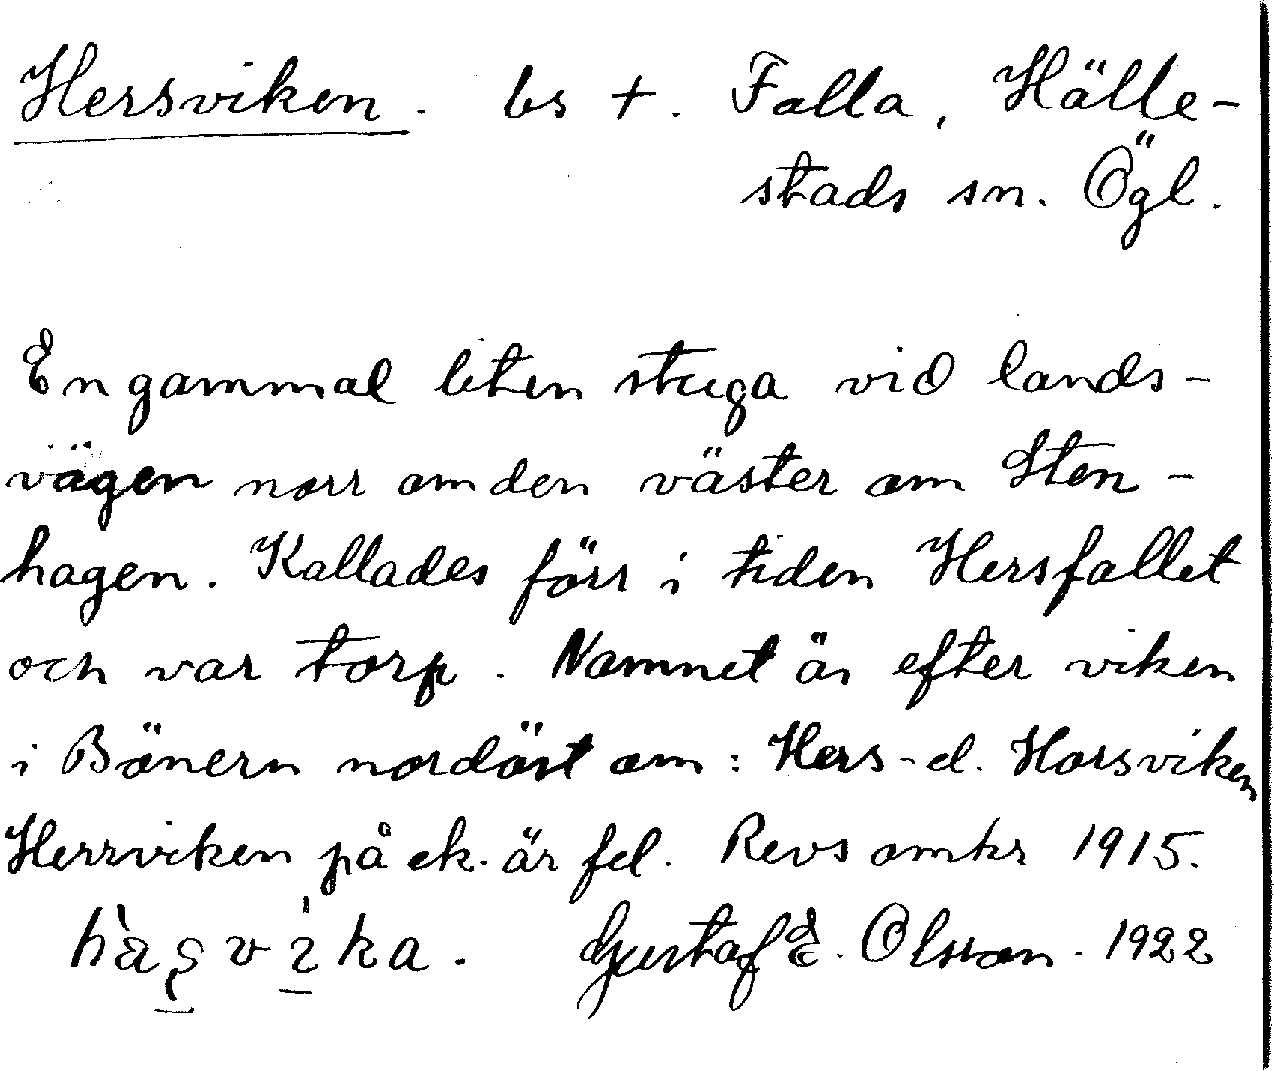 Hersviken. bs †. Falla, Hälle-
stads sn. Ögl.
En gammal liten stuga vid lands-
vägen norr om den väster om Sten-
hagen. Kallades förr i tiden Hersfallet
och var torp. Namnet är efter viken
i Bönern nordöst om: Hers- el. Horsviken
Herrviken på ek. är fel. Revs omkr 1915.
Gustaf E. Olsson. 1922